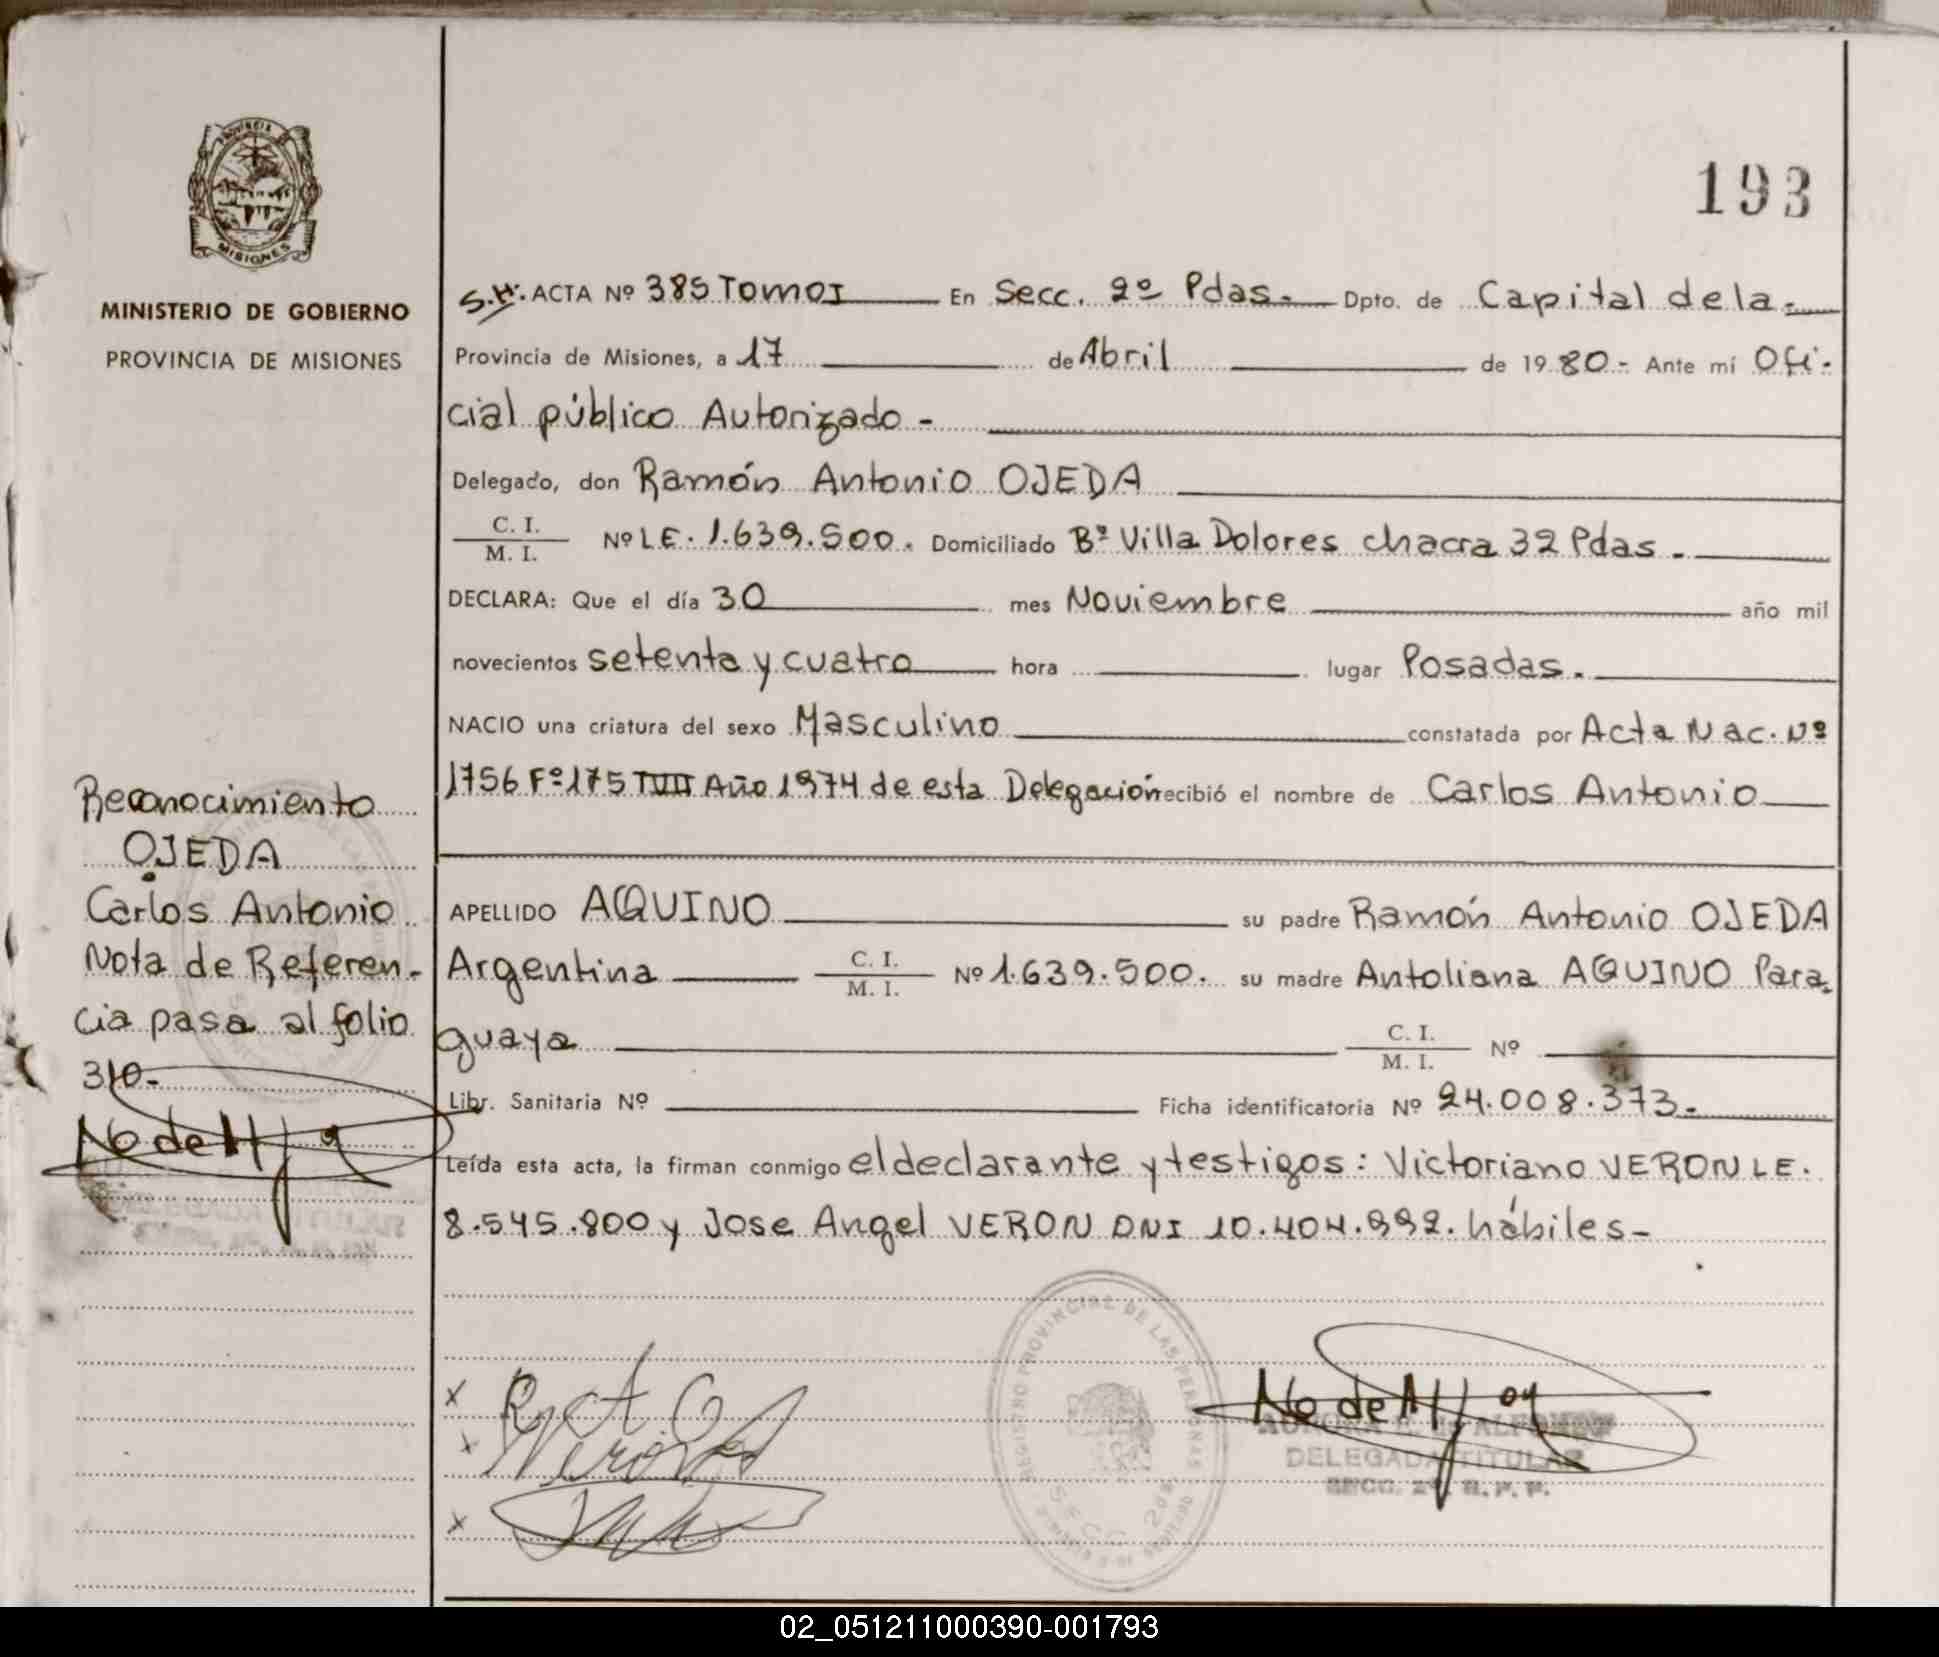 193
PROVINCIA DE
MISIONES
MINISTERIO DE GOBIERNO
PROVINCIA DE MISIONES
S.H. ACTA Nº 385 Tomo I En Secc. 2º Pdas.- Dpto. de Capital de la.-
Provincia de Misiones, a 17 de Abril de 1980.- Ante mí Ofi-
cial público Autorizado -
Delegado, don Ramón Antonio OJEDA
C. I.
M. I. Nº LE. 1.639.500. Domiciliado Bº Villa Dolores chacra 32 Pdas.-
DECLARA: Que el día 30 mes Noviembre año mil
novecientos setenta y cuatro hora lugar Posadas.-
NACIO una criatura del sexo Masculino constatada por Acta Nac. Nº
1756 Fº 175 TVII Año 1974 de esta Delegación recibió el nombre de Carlos Antonio
APELLIDO AQUINO su padre Ramón Antonio OJEDA
Argentina C. I.
M. I. Nº 1.639.500. su madre Antoliana AQUINO Para-
guaya C. I.
M. I. Nº
Libr. Sanitaria Nº Ficha identificatoria Nº 24.008.373.-
Leída esta acta, la firman conmigo el declarante y testigos: Victoriano VERON LE.
8.545.800 y Jose Angel VERON DNI 10.404.992. hábiles-
Reconocimiento
OJEDA
Carlos Antonio
Nota de Referen-
cia pasa al folio
310-
REGISTRO PROVINCIAL DE LAS PERSONAS
SECC. 2da
DELEGADA TITULAR
SECC. 2º R. P. P.
02_051211000390-001793